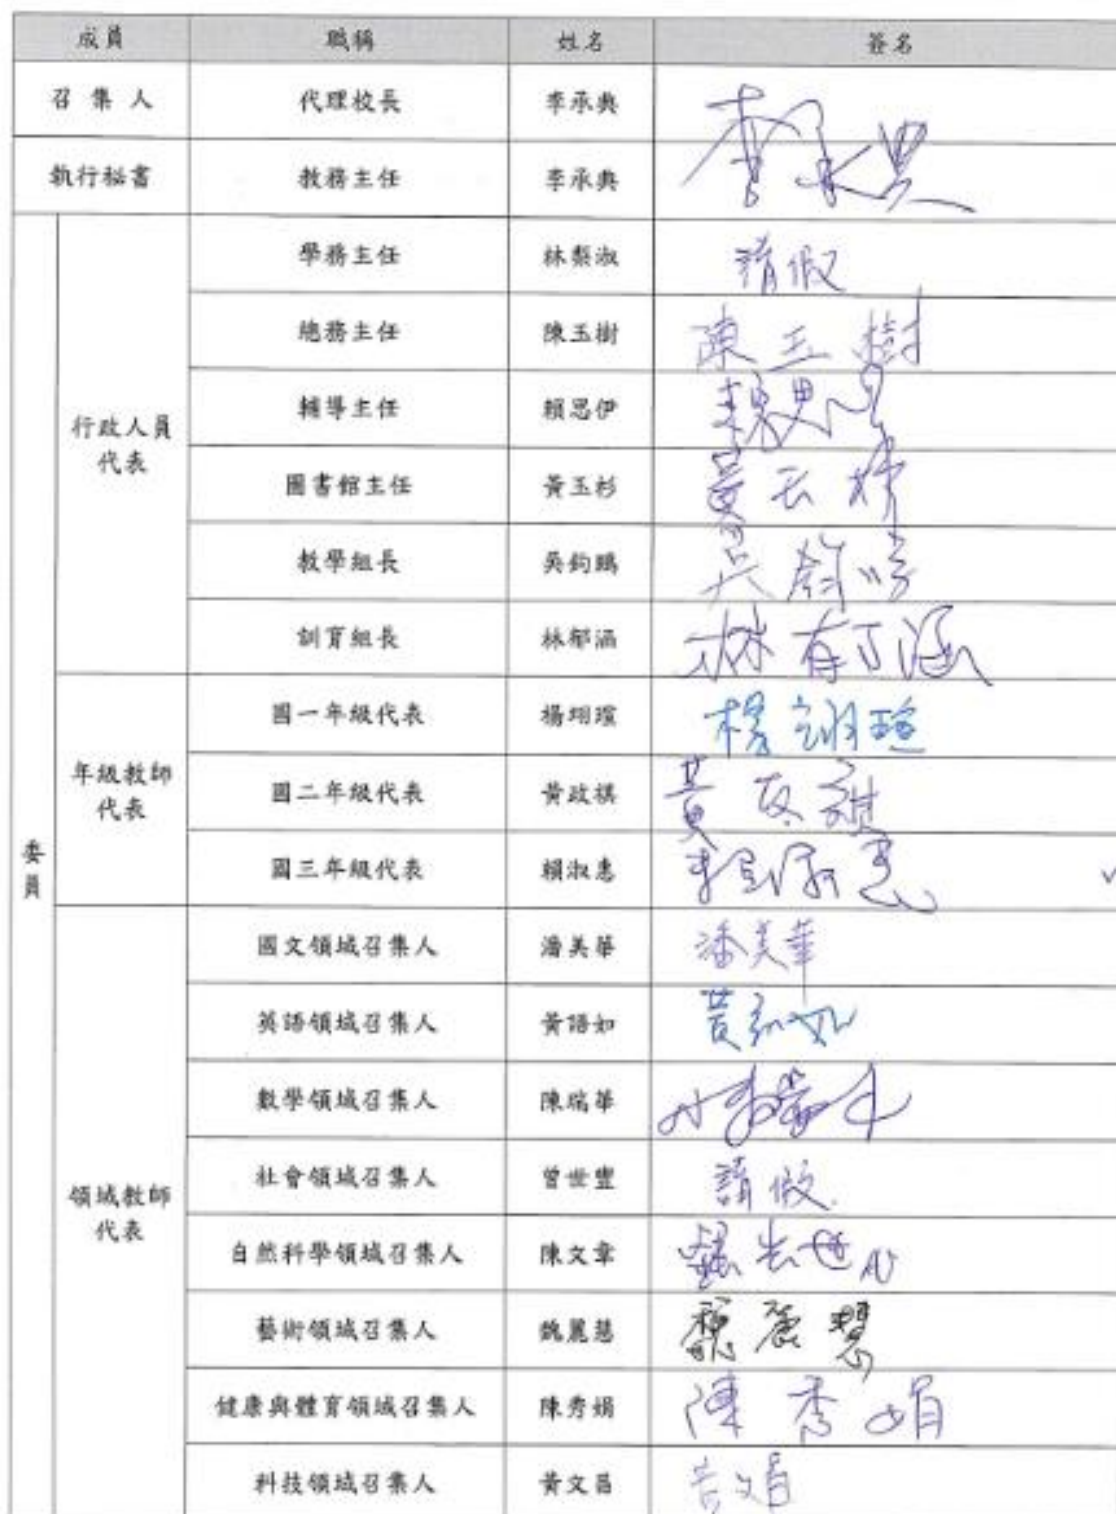 成員 職稱 姓名 簽名
召集人 代理校長 李承典 李承典
執行秘書 教務主任 李承典
委員
行政人員代表
學務主任 林梨淑 請假
總務主任 陳玉樹 陳玉樹
輔導主任 賴思伊
圖書館主任 黃玉杉
教學組長 吳鈞鵬
訓育組長 林郁涵 林郁涵
年級教師代表
國一年級代表 楊翊瑄 楊翊瑄
國二年級代表 黃政祺
國三年級代表 賴淑惠 賴淑惠
領域教師代表
國文領域召集人 潘美華 潘美華
英語領域召集人 黃語如
數學領域召集人 陳瑞華
社會領域召集人 曾世豐 請假
自然科學領域召集人 陳文章
藝術領域召集人 魏麗慧 魏麗慧
健康與體育領域召集人 陳秀娟 陳秀娟
科技領域召集人 黃文昌